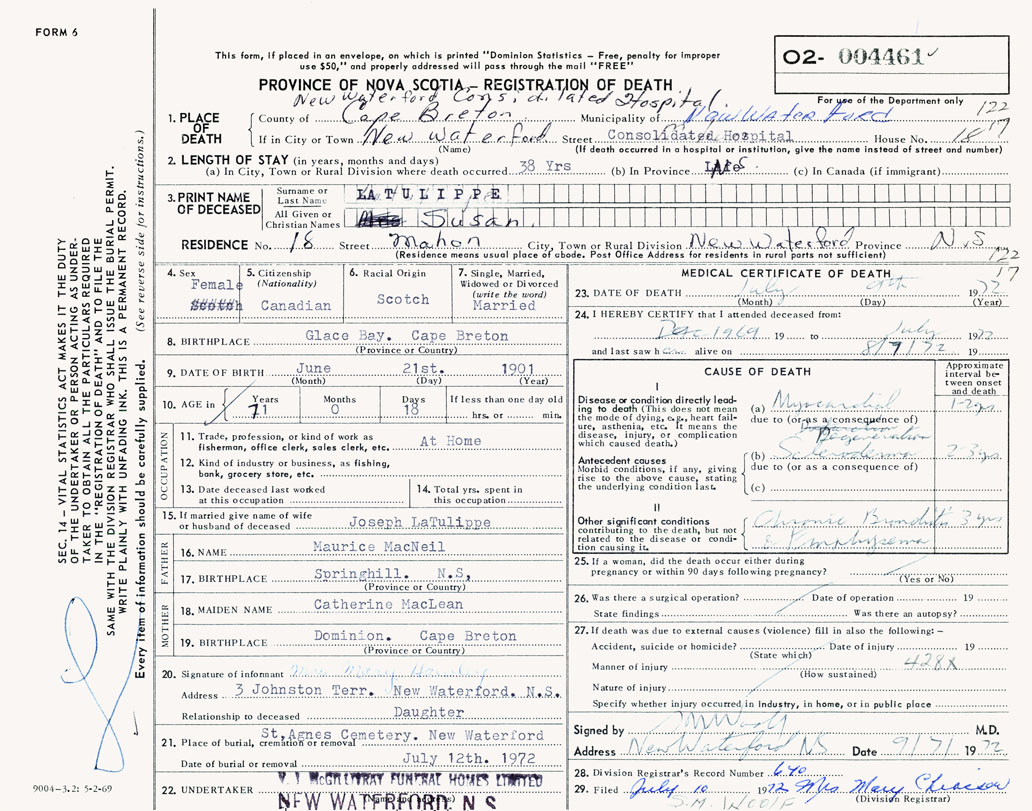 FORM 6
This form, if placed in an envelope, on which is printed "Dominion Statistics – Free, penalty for improper
use $50," and properly addressed will pass through the mail "FREE"
O2- 004461
PROVINCE OF NOVA SCOTIA – REGISTRATION OF DEATH
For use of the Department only
New Waterford Consolidated Hospital
122
1. PLACE OF DEATH
County of Cape Breton Municipality of New Waterford
If in City or Town New Waterford Street Consolidated Hospital House No. 18 17
(Name) (If death occurred in a hospital or institution, give the name instead of street and number)
2. LENGTH OF STAY (in years, months and days)
(a) In City, Town or Rural Division where death occurred 38 Yrs (b) In Province (c) In Canada (if immigrant)
3. PRINT NAME OF DECEASED
Surname or Last Name LATULIPPE
All Given or Christian Names Susan
RESIDENCE No. 18 Street Mahon City, Town or Rural Division New Waterford Province N.S
(Residence means usual place of abode. Post Office Address for residents in rural parts not sufficient)
122
17
4. Sex
Female
Scotch
5. Citizenship
(Nationality)
Canadian
6. Racial Origin
Scotch
7. Single, Married,
Widowed or Divorced
(write the word)
Married
8. BIRTHPLACE Glace Bay. Cape Breton
(Province or Country)
9. DATE OF BIRTH June 21st. 1901
(Month) (Day) (Year)
10. AGE in Years 71 Months 0 Days 18 If less than one day old
hrs. or min.
OCCUPATION
11. Trade, profession, or kind of work as
fisherman, office clerk, sales clerk, etc. At Home
12. Kind of industry or business, as fishing,
bank, grocery store, etc.
13. Date deceased last worked
at this occupation
14. Total yrs. spent in
this occupation
15. If married give name of wife
or husband of deceased Joseph LaTulippe
FATHER
16. NAME Maurice MacNeil
17. BIRTHPLACE Springhill. N.S,
(Province or Country)
MOTHER
18. MAIDEN NAME Catherine MacLean
19. BIRTHPLACE Dominion. Cape Breton
(Province or Country)
20. Signature of informant Mrs Mary
Address 3 Johnston Terr. New Waterford. N.S.
Relationship to deceased Daughter
21. Place of burial, cremation or removal St,Agnes Cemetery. New Waterford
Date of burial or removal July 12th. 1972
22. UNDERTAKER V. J. McGILLIVRAY FUNERAL HOMES LIMITED
NEW WATERFORD N S
MEDICAL CERTIFICATE OF DEATH
23. DATE OF DEATH July 9th 1972
(Month) (Day) (Year)
24. I HEREBY CERTIFY that I attended deceased from:
Dec 1969 19 to July 1972
and last saw h alive on 8/7/72 19
CAUSE OF DEATH
Approximate interval between onset and death
I
Disease or condition directly leading to death (This does not mean the mode of dying, e.g., heart failure, asthenia, etc. It means the disease, injury, or complication which caused death.)
(a) Myocardial 1-2yrs
due to (or as a consequence of)
Degeneration
Antecedent causes
Morbid conditions, if any, giving rise to the above cause, stating the underlying condition last.
(b) Scleroderma 2-3yrs
due to (or as a consequence of)
(c)
II
Other significant conditions contributing to the death, but not related to the disease or condition causing it.
Chronic Bronchitis 3 yrs
& Emphysema
25. If a woman, did the death occur either during
pregnancy or within 90 days following pregnancy?
(Yes or No)
26. Was there a surgical operation? Date of operation 19
State findings Was there an autopsy?
27. If death was due to external causes (violence) fill in also the following: –
Accident, suicide or homicide? Date of injury 19
(State which)
Manner of injury 428X
(How sustained)
Nature of injury
Specify whether injury occurred in Industry, in home, or in public place
Signed by M.D.
Address New Waterford NS Date 9/7/ 1972
28. Division Registrar's Record Number 640
29. Filed July 10 1972 Mrs. Mary
(Division Registrar)
SEC. 14 – VITAL STATISTICS ACT MAKES IT THE DUTY
OF THE UNDERTAKER OR PERSON ACTING AS UNDER-
TAKER TO OBTAIN ALL THE PARTICULARS REQUIRED
IN THE "REGISTRATION OF DEATH" AND TO FILE THE
SAME WITH THE DIVISION REGISTRAR WHO SHALL ISSUE THE BURIAL PERMIT.
WRITE PLAINLY WITH UNFADING INK. THIS IS A PERMANENT RECORD.
Every item of information should be carefully supplied. (See reverse side for instructions.)
9004-3.2: 5-2-69